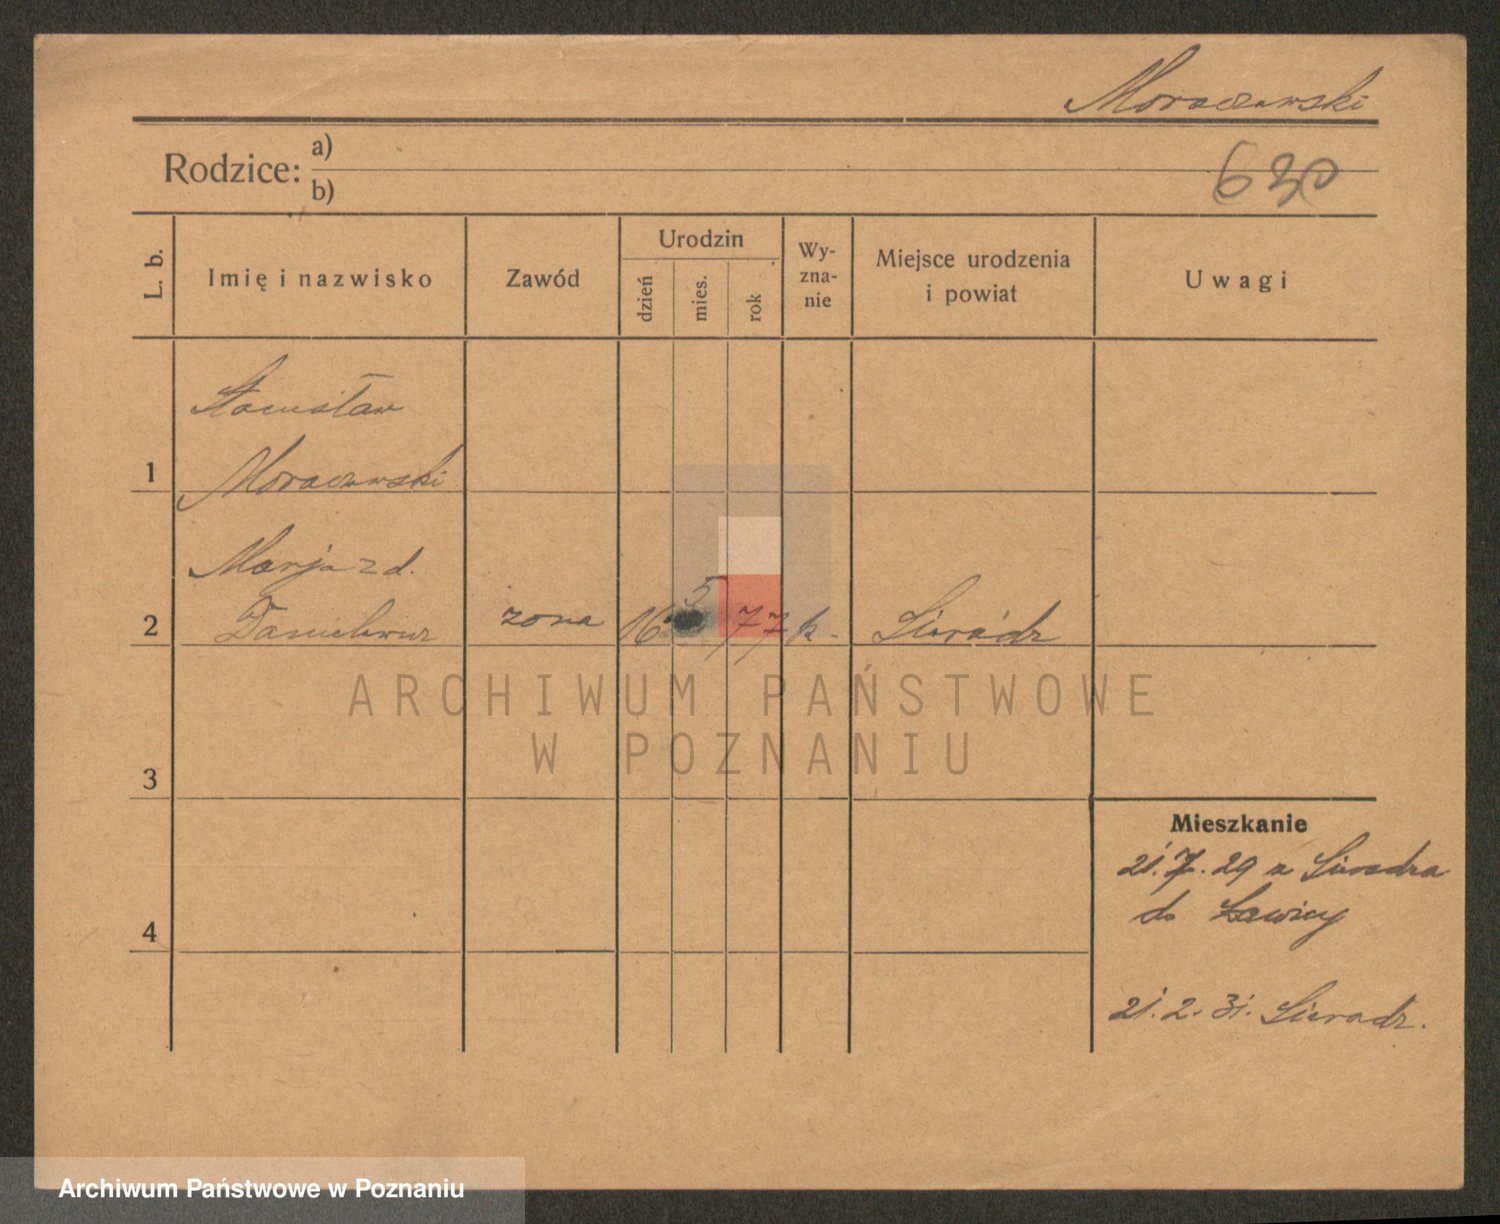 Moraczewski
Rodzice: a)
b)
630
L. b.
Imię i nazwisko
Zawód
Urodzin
dzień
mies.
rok
Wy-
zna-
nie
Miejsce urodzenia
i powiat
Uwagi
Stanisław
1 Moraczewski
Marja z d.
2 Danielewicz zona 16 5 77 k. Sieradz
ARCHIWUM PAŃSTWOWE
W POZNANIU
3
Mieszkanie
21.7.29 z Sieradza
do Ławicy
4
21.2.31. Sieradz.
Archiwum Państwowe w Poznaniu